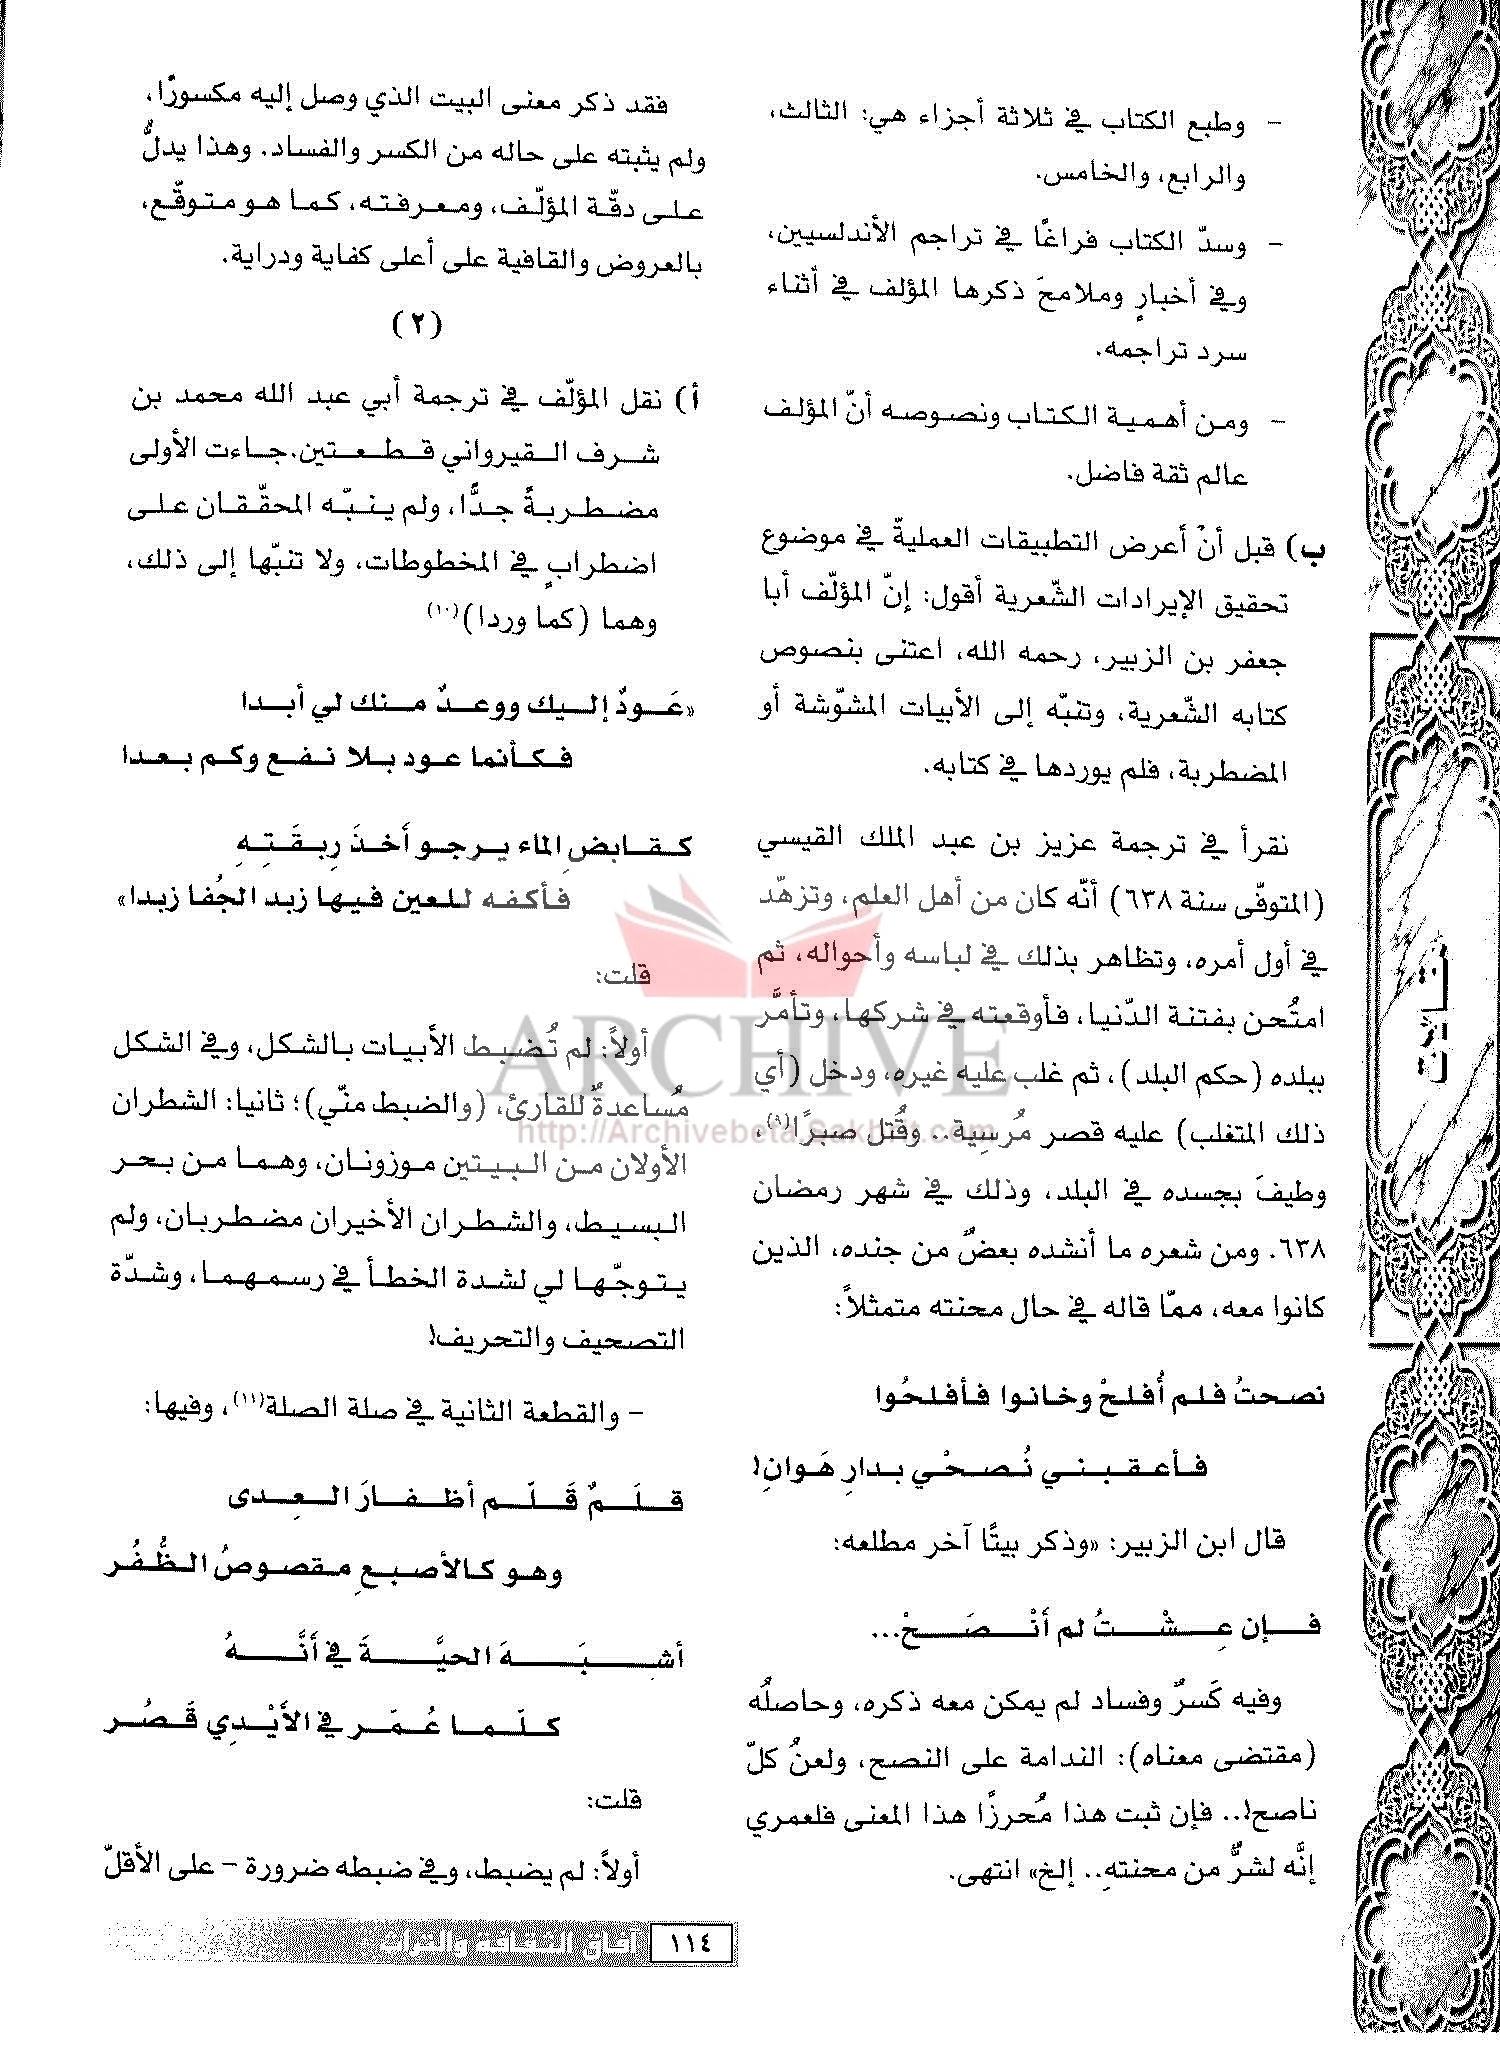 - وطبع الكتاب في ثلاثة أجزاء هي: الثالث،
والرابع، والخامس.
- وسدّ الكتاب فراغًا في تراجم الأندلسيين،
وفي أخبارٍ وملامحَ ذكرها المؤلف في أثناء
سرد تراجمه.
- ومن أهمية الكتاب ونصوصه أنّ المؤلف
عالم ثقة فاضل.
ب) قبل أنْ أعرض التطبيقات العمليةّ في موضوع
تحقيق الإيرادات الشّعرية أقول: إنّ المؤلّف أبا
جعفر بن الزبير، رحمه الله، اعتنى بنصوص
كتابه الشّعرية، وتنبّه إلى الأبيات المشوّشة أو
المضطربة، فلم يوردها في كتابه.
نقرأ في ترجمة عزيز بن عبد الملك القيسي
(المتوفّى سنة ٦٣٨) أنّه كان من أهل العلم، وتزهّد
في أول أمره، وتظاهر بذلك في لباسه وأحواله، ثم
امتُحن بفتنة الدّنيا، فأوقعته في شركها، وتأمَّر
ببلده (حكم البلد)، ثم غلب عليه غيره، ودخل (أي
ذلك المتغلب) عليه قصر مُرسِية.. وقُتل صبرًا(٩)،
وطيفَ بجسده في البلد، وذلك في شهر رمضان
٦٣٨. ومن شعره ما أنشده بعضٌ من جنده، الذين
كانوا معه، ممّا قاله في حال محنته متمثلاً:
نصحتُ فلم أُفلحْ وخانوا فأفلحُوا
فأعقبني نُصحْي بدارِ هَوانِ!
قال ابن الزبير: «وذكر بيتًا آخر مطلعه:
فإن عِشْتُ لم أنْصَحْ...
وفيه كَسرٌ وفساد لم يمكن معه ذكره، وحاصلُه
(مقتضى معناه): الندامة على النصح، ولعنُ كلّ
ناصح!.. فإن ثبت هذا مُحرزًا هذا المعنى فلعمري
إنَّه لشرٌّ من محنتهِ.. إلخ» انتهى.
فقد ذكر معنى البيت الذي وصل إليه مكسورًا،
ولم يثبته على حاله من الكسر والفساد. وهذا يدلُّ
على دقّة المؤلّف، ومعرفته، كما هو متوقّع،
بالعروض والقافية على أعلى كفاية ودراية.
(٢)
أ) نقل المؤلّف في ترجمة أبي عبد الله محمد بن
شرف القيرواني قطعتين. جاءت الأولى
مضطربةً جدًّا، ولم ينبّه المحقّقان على
اضطرابٍ في المخطوطات، ولا تنبّها إلى ذلك،
وهما (كما وردا)(١٠)
«عَودٌ إليك ووعدٌ منك لي أبدا
فكأنما عود بلا نفع وكم بعدا
كقابضِ الماء يرجو أَخذَ رِبقَتِهِ
فأكفه للعين فيها زبد الجُفا زبدا»
قلت:
أولاً: لم تُضبط الأبيات بالشكل، وفي الشكل
مُساعدةٌ للقارئ، (والضبط منّي)؛ ثانيا: الشطران
الأولان من البيتين موزونان، وهما من بحر
البسيط، والشطران الأخيران مضطربان، ولم
يتوجّها لي لشدة الخطأ في رسمهما، وشدّة
التصحيف والتحريف!
- والقطعة الثانية في صلة الصلة(١١)، وفيها:
قلَمٌ قَلّم أظفارَ العِدى
وهو كالأصبعِ مقصوصُ الظُّفُر
أشبَهَ الحيَّةَ في أَنَّهُ
كلّما عُمّر في الأَيْدِي قَصُر
قلت:
أولاً: لم يضبط، وفي ضبطه ضرورة - على الأقلّ
مقالات
ARCHIVE
http://Archivebeta.Sakhrit.com
١١٤
آفاق الثقافة والتراث